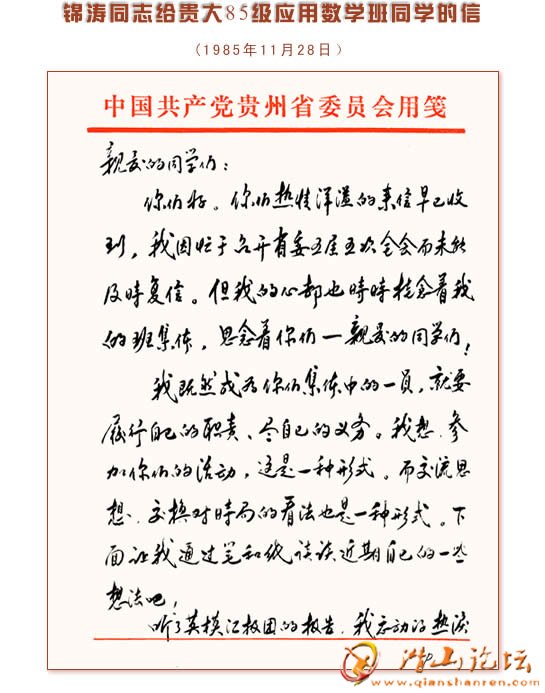 锦涛同志给贵大85级应用数学班同学的信
(1985年11月28日)
中国共产党贵州省委员会用笺
亲爱的同学们：
你们好。你们热情洋溢的来信早已收
到，我因忙于召开省委五届五次全会而未能
及时复信。但我的心却也时时挂念着我
的班集体，思念着你们—亲爱的同学们！
我既然成为你们集体中的一员，就要
履行自己的职责、尽自己的义务。我想，参
加你们的活动，这是一种形式。而交流思
想、交换对时局的看法也是一种形式。下
面让我通过笔和纸谈谈近期自己的一些
想法吧！
听了英模汇报团的报告，我感动得热泪
潜山论坛
www.qianshanren.com